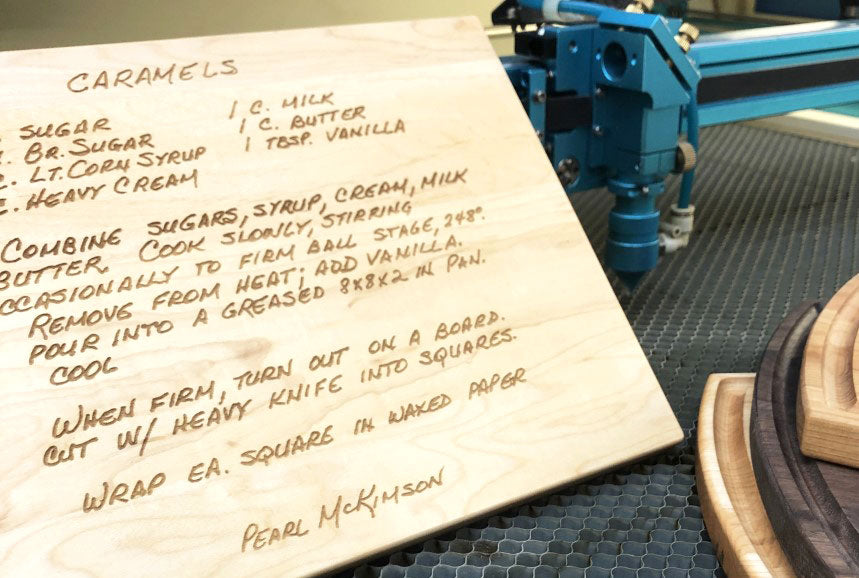 CARAMELS
SUGAR
BR. SUGAR
C. LT. CORN SYRUP
C. HEAVY CREAM
1 C. MILK
1 C. BUTTER
1 TBSP. VANILLA
COMBINE SUGARS, SYRUP, CREAM, MILK
BUTTER. COOK SLOWLY, STIRRING
OCCASIONALLY TO FIRM BALL STAGE, 248°.
REMOVE FROM HEAT; ADD VANILLA.
POUR INTO A GREASED 8X8X2 IN PAN.
COOL
WHEN FIRM, TURN OUT ON A BOARD.
CUT W/ HEAVY KNIFE INTO SQUARES.
WRAP EA. SQUARE IN WAXED PAPER
PEARL McKIMSON